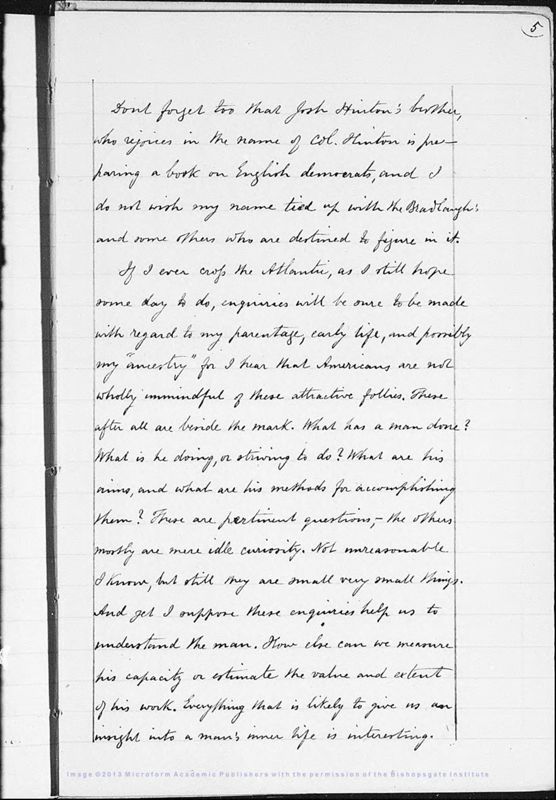 5
Dont forget too that Josh Hinton's brother,
who rejoices in the name of Col. Hinton is pre-
paring a book on English democrats, and I
do not wish my name tied up with the Bradlaugh's
and some others who are destined to figure in it.
If I ever cross the Atlantic, as I still hope
some day to do, enquiries will be sure to be made
with regard to my parentage, early life, and possibly
my "ancestry" for I hear that Americans are not
wholly unmindful of these attractive follies. These
after all are beside the mark. What has a man done?
What is he doing, or striving to do? What are his
aims, and what are his methods for accomplishing
them? These are pertinent questions,- the others
mostly are mere idle curiosity. Not unreasonable
I know, but still they are small very small things.
And yet I suppose these enquiries help us to
understand the man. How else can we measure
his capacity or estimate the value and extent
of his work. Everything that is likely to give us an
insight into a man's inner life is interesting.
Image ©2013 Microform Academic Publishers with the permission of the Bishopsgate Institute